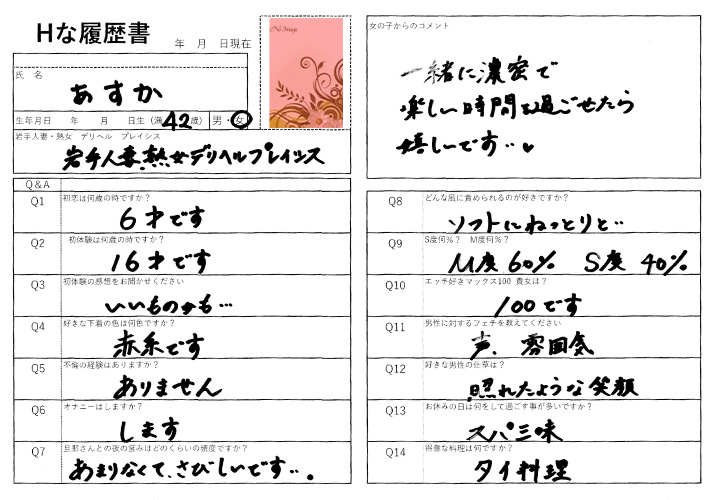 Hな履歴書
年 月 日現在
No Image
氏 名
あすか
生年月日 年 月 日生 (満 42 歳) 男・女
岩手人妻・熟女 デリヘル プレイシス
岩手人妻、熟女デリヘルプレイシス
Q&A
Q1 初恋は何歳の時ですか?
6才です
Q2 初体験は何歳の時ですか?
16才です
Q3 初体験の感想をお聞かせください
いいものかも…
Q4 好きな下着の色は何色ですか?
赤系です
Q5 不倫の経験はありますか?
ありません
Q6 オナニーはしますか?
します
Q7 旦那さんとの夜の営みはどのくらいの頻度ですか?
あまりなくて、さびしいです…。
女の子からのコメント
一緒に濃密で
楽しい時間を過ごせたら
嬉しーです…♥
Q8 どんな風に責められるのが好きですか?
ソフトにねっとりと…
Q9 S度何%? M度何%?
M度 60% S度 40%
Q10 エッチ好きマックス100 貴女は?
100です
Q11 男性に対するフェチを教えてください
声、雰囲気
Q12 好きな男性の仕草は?
照れたような笑顔
Q13 お休みの日は何をして過ごす事が多いですか?
スパ三昧
Q14 得意な料理は何ですか?
タイ料理